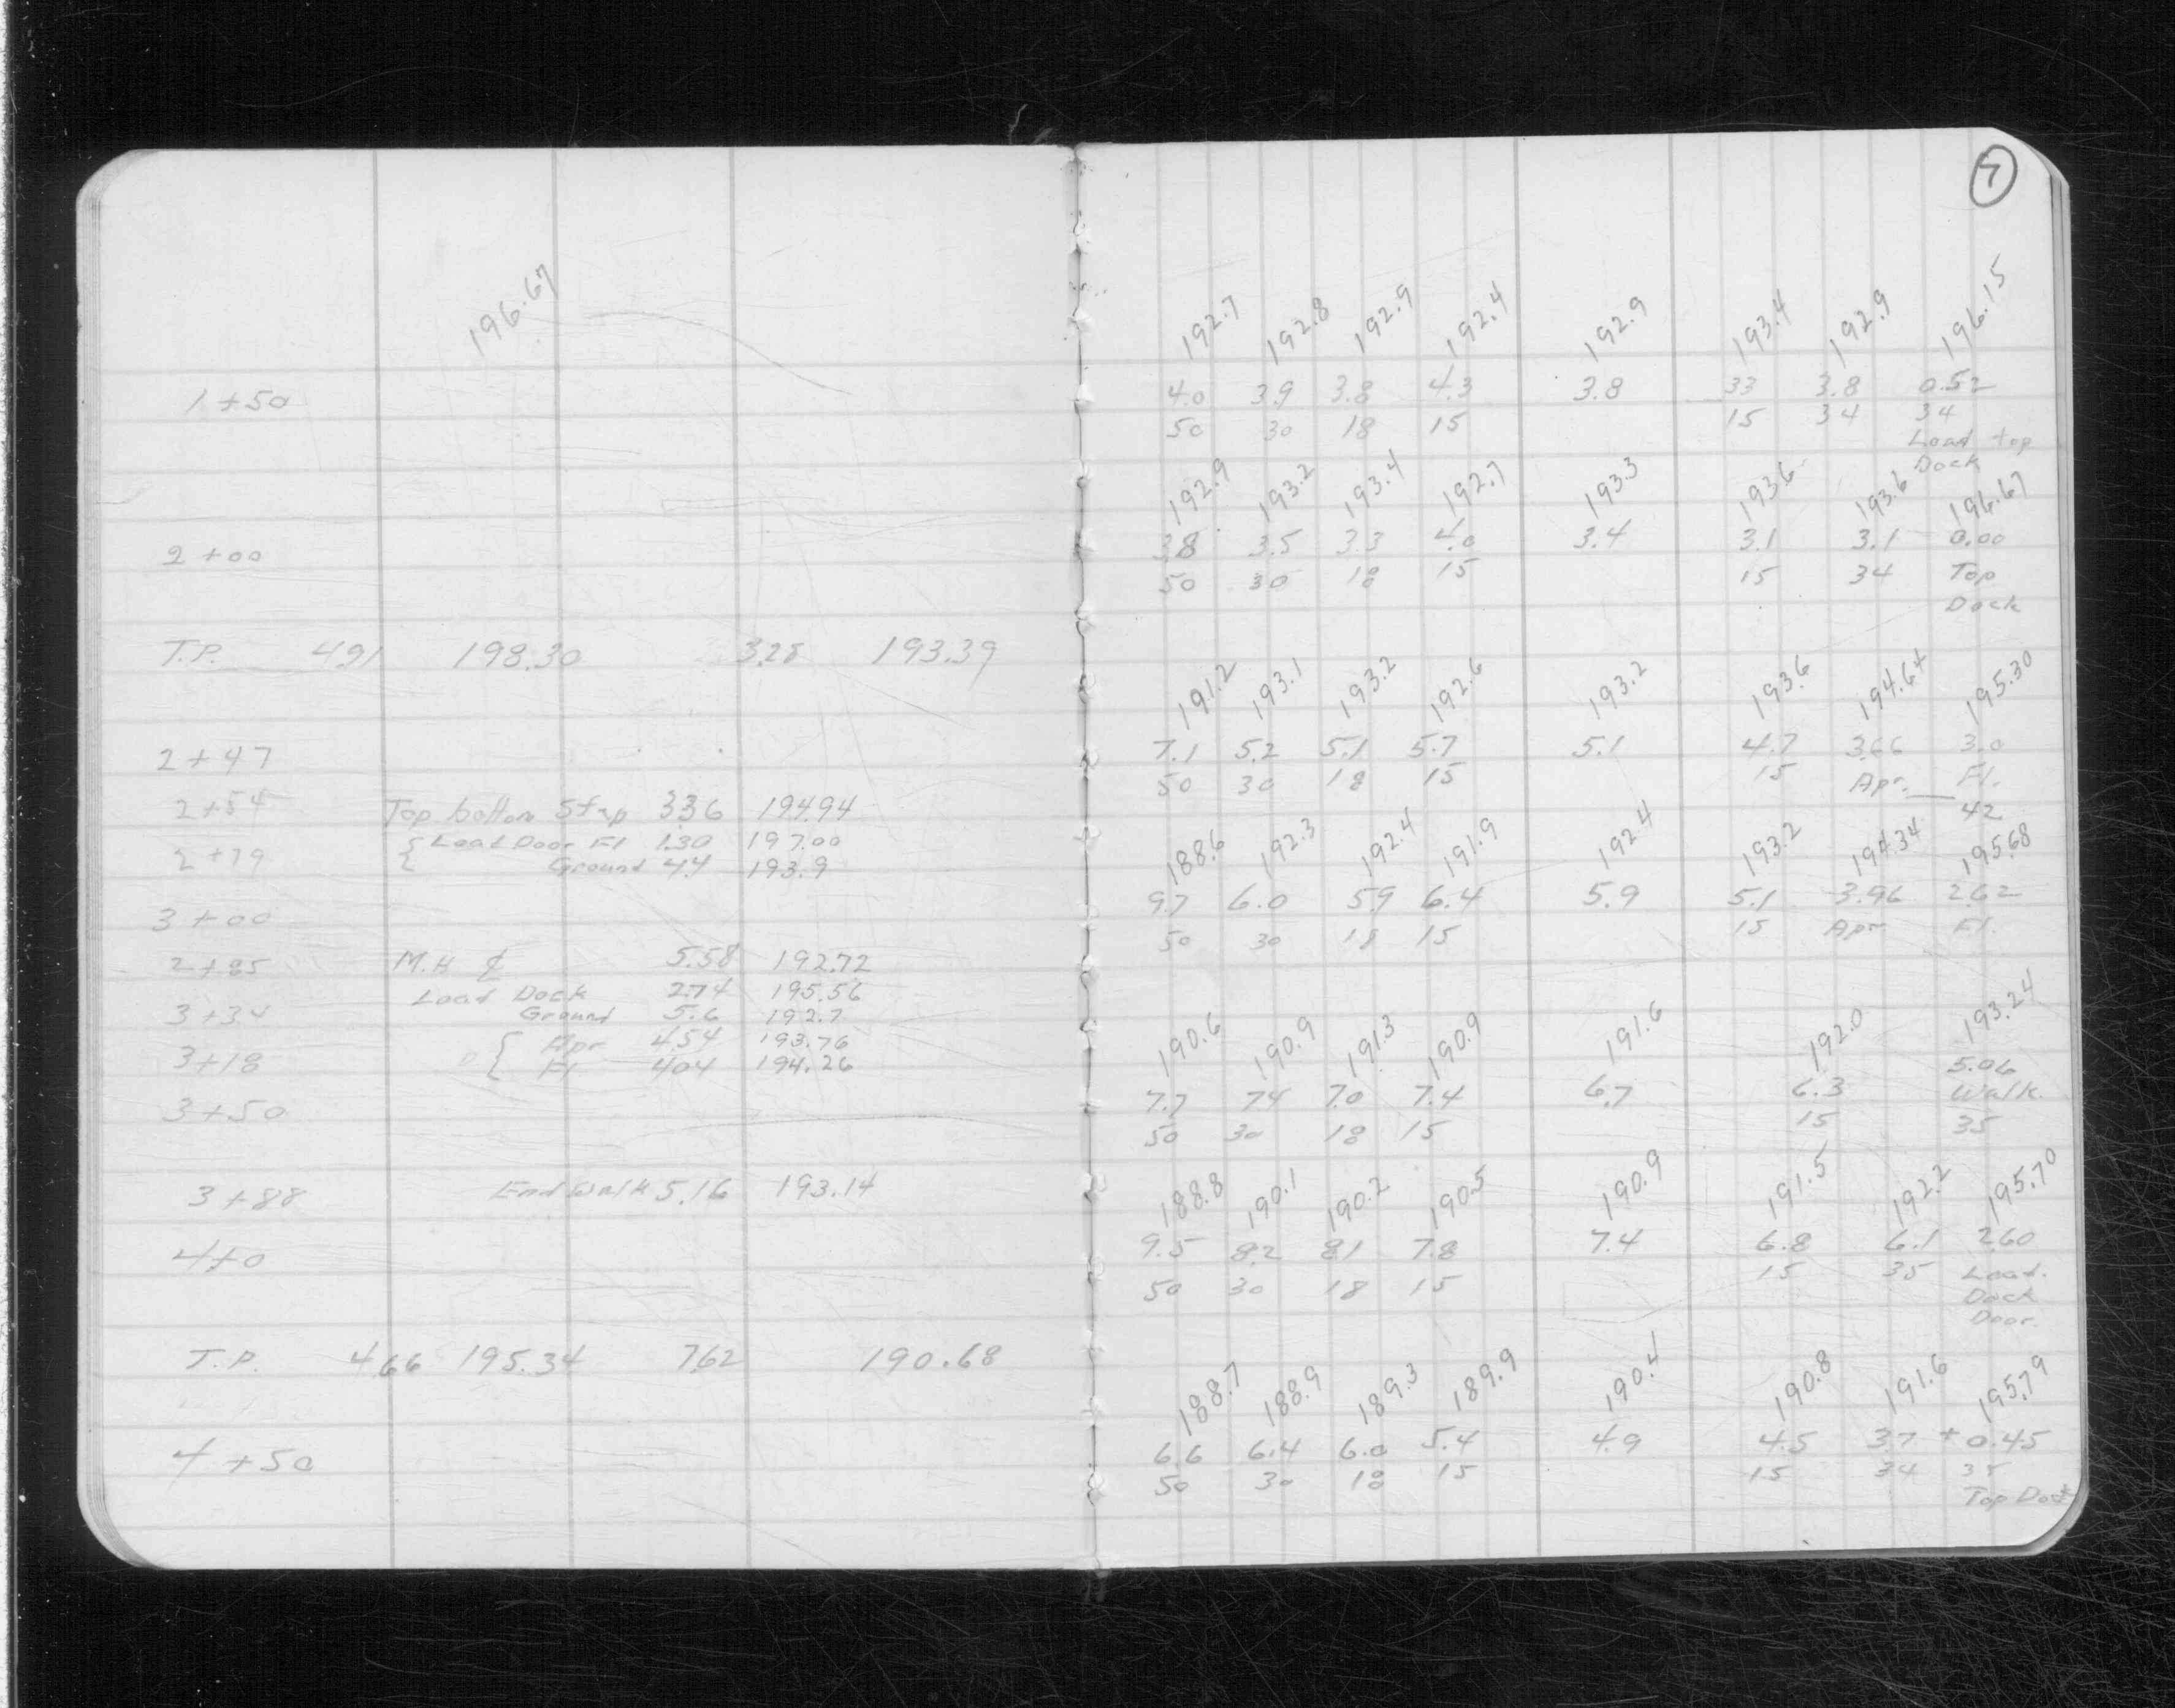 7
196.67
192.7 192.8 192.9 192.4 192.9 193.4 192.9 196.15
1+50 4.0 3.9 3.8 4.3 3.8 3.3 3.8 0.52
50 30 18 15 15 34 34
Load top
Dock
192.9 193.2 193.4 192.7 193.3 193.6 193.6 196.67
2+00 3.8 3.5 3.3 4.0 3.4 3.1 3.1 0.00
50 30 18 15 15 34 Top
Dock
T.P. 4.91 198.30 3.28 193.39
191.2 193.1 193.2 192.6 193.2 193.6 194.64 195.30
2+47 7.1 5.2 5.1 5.7 5.1 4.7 3.66 3.0
50 30 18 15 15 Apr. Fl.
42
2+54 Top bottom Step 3.36 194.94
2+79 { Load Door Fl 1.30 197.00
Ground 4.4 193.9
188.6 192.3 192.4 191.9 192.4 193.2 194.34 195.68
3+00 9.7 6.0 5.9 6.4 5.9 5.1 3.96 2.62
50 30 18 15 15 Apr Fl.
2+85 M.H ℄ 5.58 192.72
Load Dock 2.74 195.56
3+34 Ground 5.6 192.7
3+18 { Apr 4.54 193.76
Fl 4.04 194.26
190.6 190.9 191.3 190.9 191.6 192.0 193.24
3+50 7.7 7.4 7.0 7.4 6.7 6.3 5.06
Walk.
50 30 18 15 15 35
3+88 End Walk 5.16 193.14
188.8 190.1 190.2 190.5 190.9 191.5 192.2 195.70
4+0 9.5 8.2 8.1 7.8 7.4 6.8 6.1 2.60
50 30 18 15 15 35 Load.
Dock
Door.
T.P. 4.66 195.34 7.62 190.68
188.7 188.9 189.3 189.9 190.4 190.8 191.6 195.79
4+50 6.6 6.4 6.0 5.4 4.9 4.5 3.7 +0.45
50 30 18 15 15 34 35
Top Dock